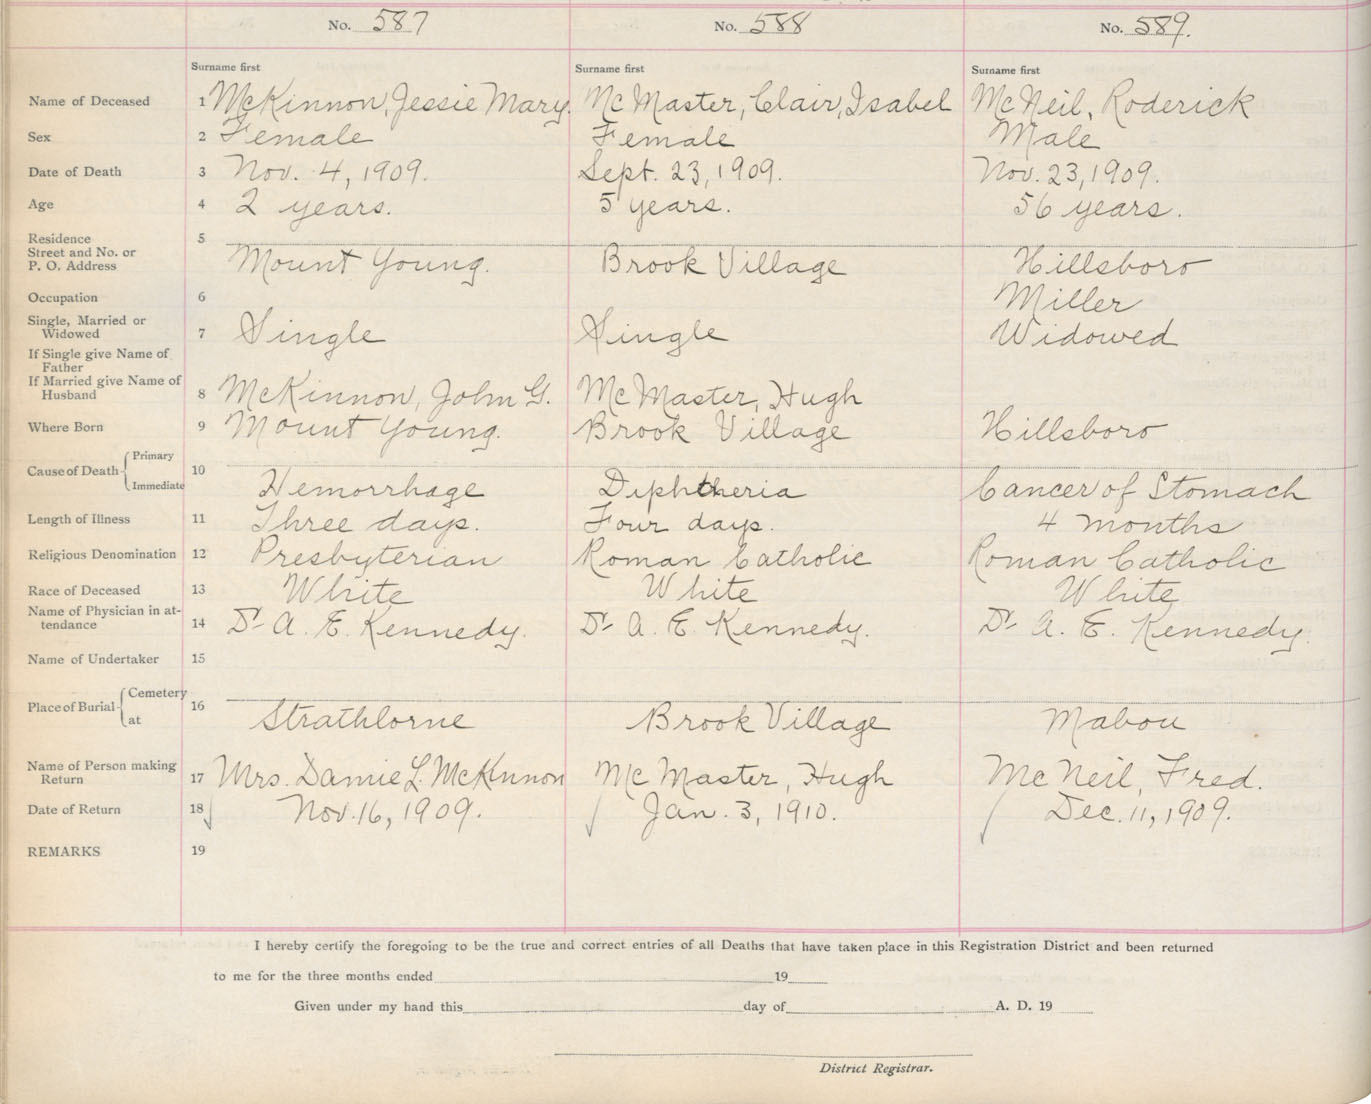 No. 587 No. 588 No. 589.
Surname first Surname first Surname first
Name of Deceased 1 McKinnon, Jessie Mary. McMaster, Clair, Isabel McNeil, Roderick
Sex 2 Female Female Male
Date of Death 3 Nov. 4, 1909. Sept. 23, 1909. Nov. 23, 1909.
Age 4 2 years. 5 years. 56 years.
Residence 5
Street and No. or
P. O. Address Mount Young. Brook Village Hillsboro
Occupation 6 Miller
Single, Married or
Widowed 7 Single Single Widowed
If Single give Name of
Father
If Married give Name of
Husband 8 McKinnon, John G. McMaster, Hugh
Where Born 9 Mount Young. Brook Village Hillsboro
Primary
Cause of Death 10
Immediate Hemorrhage Diphtheria Cancer of Stomach
Length of Illness 11 Three days. Four days. 4 months
Religious Denomination 12 Presbyterian Roman Catholic Roman Catholic
Race of Deceased 13 White White White
Name of Physician in at-
tendance 14 Dr A. E. Kennedy. Dr A. E. Kennedy. Dr A. E. Kennedy.
Name of Undertaker 15
Cemetery
Place of Burial 16
at Strathlorne Brook Village Mabou
Name of Person making
Return 17 Mrs. Dannie L. McKinnon McMaster, Hugh McNeil, Fred.
Date of Return 18 Nov. 16, 1909. Jan. 3, 1910. Dec. 11, 1909.
REMARKS 19
I hereby certify the foregoing to be the true and correct entries of all Deaths that have taken place in this Registration District and been returned
to me for the three months ended 19
Given under my hand this day of A. D. 19
District Registrar.